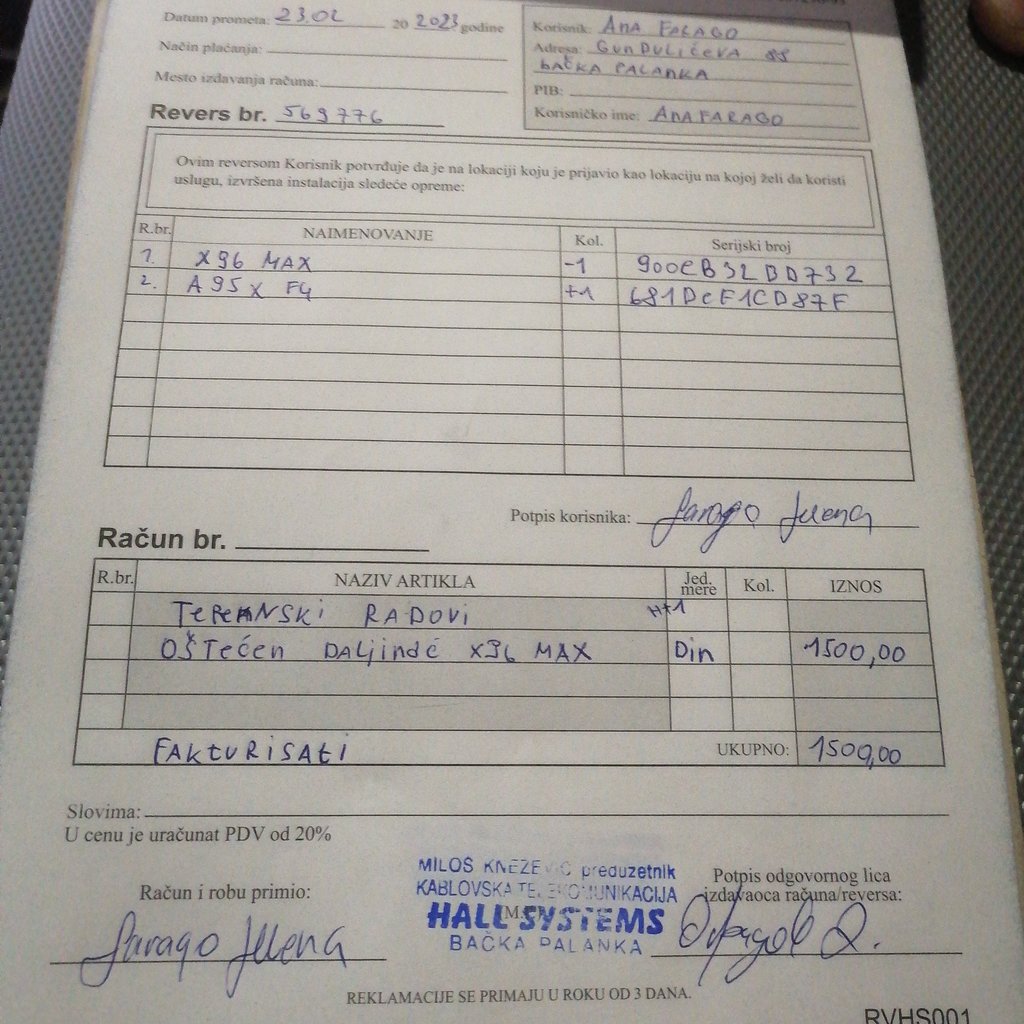 Datum prometa: 23.02 20 2023 godine
Način plaćanja:
Mesto izdavanja računa:
Korisnik: ANA FARAGO
Adresa: GUNDULIĆEVA 88
BAČKA PALANKA
PIB:
Korisničko ime: ANAFARAGO
Revers br. 569776
Ovim reversom Korisnik potvrđuje da je na lokaciji koju je prijavio kao lokaciju na kojoj želi da koristi
uslugu, izvršena instalacija sledeće opreme:
R.br. NAIMENOVANJE Kol. Serijski broj
1. X96 MAX -1 900EB32BD732
2. A95X F4 +1 681DEF1CD87F
Potpis korisnika: Farago Jelena
Račun br.
R.br. NAZIV ARTIKLA Jed. mere Kol. IZNOS
TERENSKI RADOVI H+1
OŠTEĆEN DALJINCÉ X96 MAX Din 1500,00
FAKTURISATI UKUPNO: 1500,00
Slovima:
U cenu je uračunat PDV od 20%
MILOŠ KNEŽEVIĆ preduzetnik
KABLOVSKA TELEKOMUNIKACIJA
HALL SYSTEMS
BAČKA PALANKA
Račun i robu primio:
Farago Jelena
Potpis odgovornog lica
izdavaoca računa/reversa:
REKLAMACIJE SE PRIMAJU U ROKU OD 3 DANA.
RVHS001